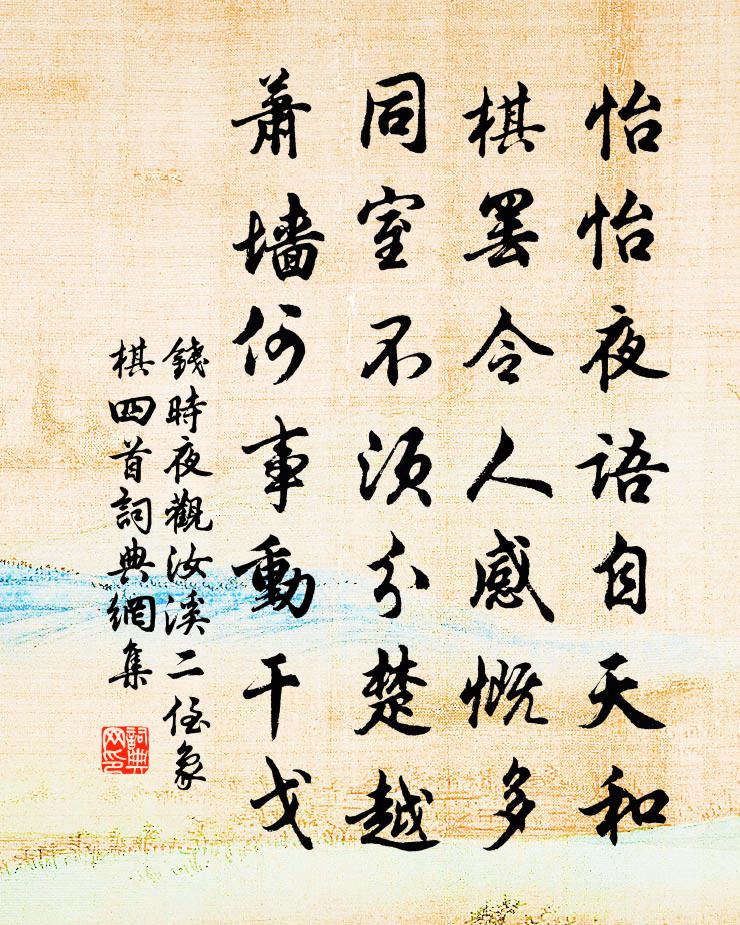 怡怡夜语自天和
棋罢令人感慨多
同室不须分楚越
萧墙何事動干戈
錢時夜觀汝溪二侄象
棋四首詞典網集
詞典
网印